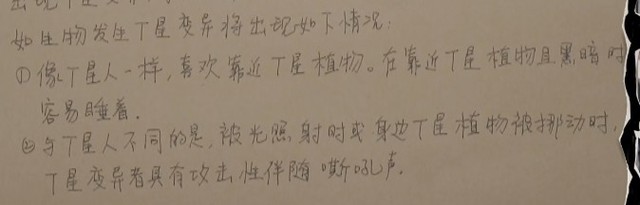 如生物发生丁星变异将出现如下情况:
①像丁星人一样,喜欢靠近丁星植物。在靠近丁星植物且黑暗时
容易睡着.
②与丁星人不同的是,被光照射时或身边丁星植物被挪动时,
丁星变异者具有攻击性伴随嘶吼声.